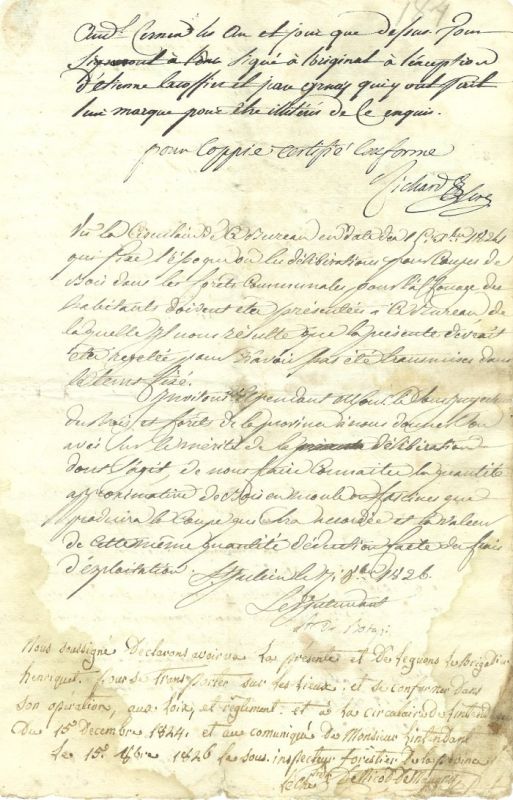 184
an et jour que dessus.
signé à l'original à l'exception
d'étienne et jean qui y ont fait
leur marque pour être illitérés de ce enquis.
pour Coppie certifié Conforme
Richard
Vu la Circulaire de ce Bureau en date du 15 Xbre 1824
qui fixe l'Epoque où les délibérations pour Coupes de
Bois dans les forêts Communales pour l'affouage des
habitants doivent etre présentées à ce Bureau de
laquelle il nous résulte que la présente devrait
etre rejetée pour n'avoir pas été transmise dans
le tems fixé.
Invitons Cependant
des Bois et forêts de la province à nous donner Son
avis sur le mérite de la délibération
dont s'agit, de nous faire Connaitre la quantité
approximative de Bois en moule ou fascines que
produira la Coupe qui Sera accordée et la Valeur
de cette même quantité déduction faite des frais
d'éxploitation. St Julien le 1826
Le
De
Nous soussigné Declarons avoir vu la presente et Deleguons le brigadier
henriquet pour se transporter sur les lieux et se conformer dans
son operation, aux loix, et règlement et à la circulaire de
Du 15 Decembre 1824. et au communiqué de Monsieur Lintendant
Le 15 1826 le sous inspecteur forestier de la province
le Cher De